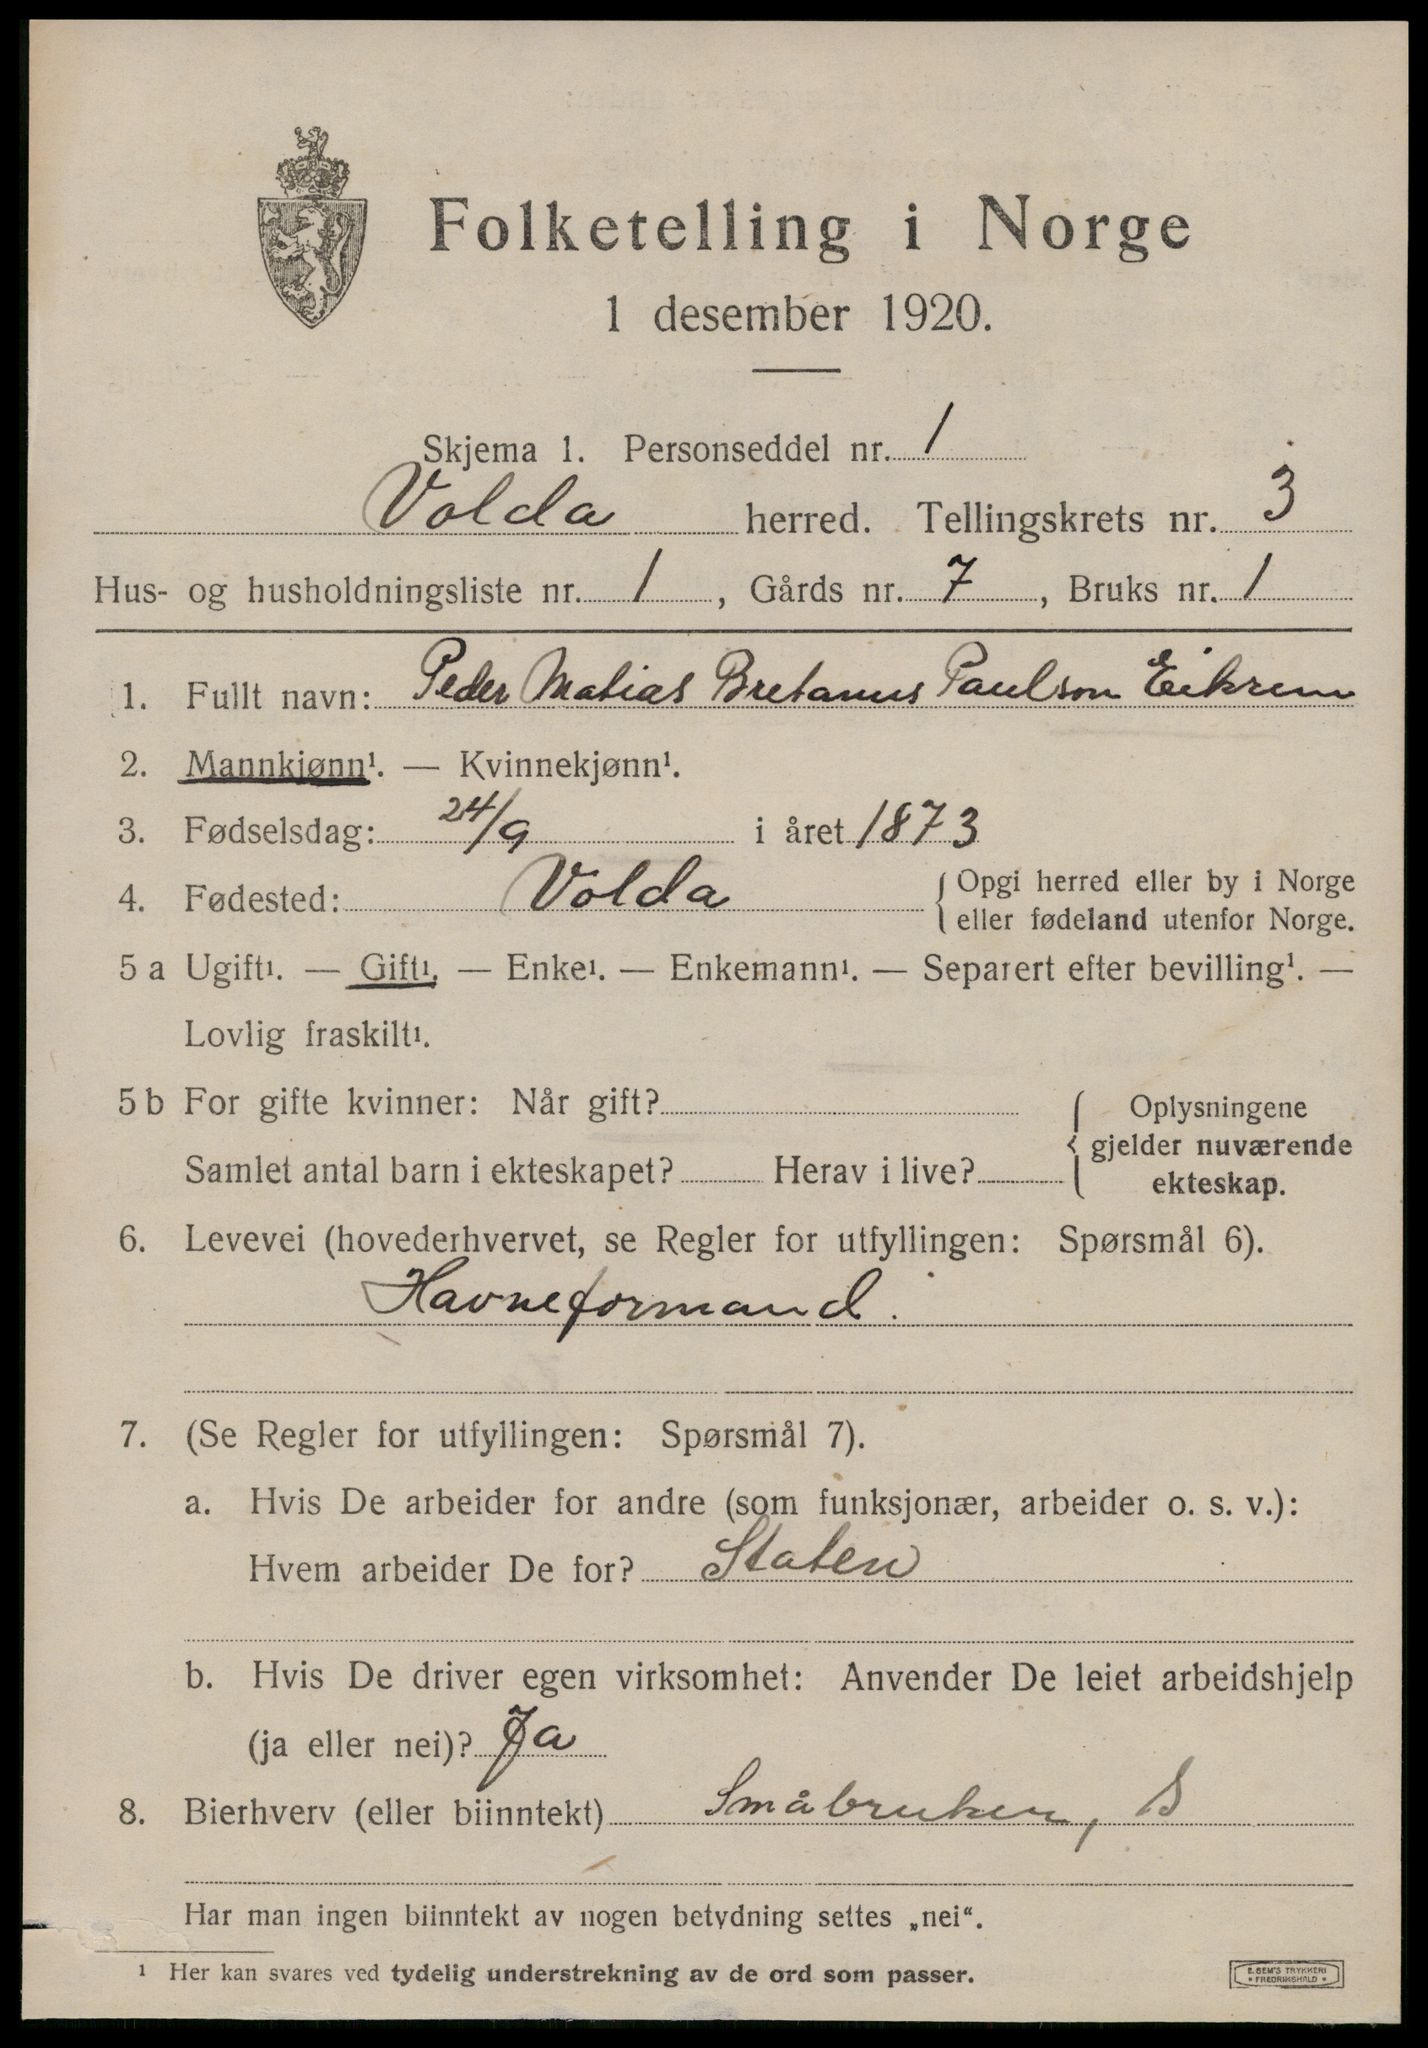 Folketelling i Norge
1 desember 1920.
Skjema 1. Personseddel nr. 1
Volda herred. Tellingskrets nr. 3
Hus- og husholdningsliste nr. 1, Gårds nr. 7, Bruks nr. 1
1. Fullt navn: Peder Matias Bretanus Paulson Eikrem
2. Mannkjønn¹. — Kvinnekjønn¹.
3. Fødselsdag: 24/9 i året 1873
4. Fødested: Volda { Opgi herred eller by i Norge
eller fødeland utenfor Norge.
5 a Ugift¹. — Gift¹. — Enke¹. — Enkemann¹. — Separert efter bevilling¹. —
Lovlig fraskilt¹.
5 b For gifte kvinner: Når gift? { Oplysningene
gjelder nuværende
Samlet antal barn i ekteskapet? Herav i live? ekteskap.
6. Levevei (hovederhvervet, se Regler for utfyllingen: Spørsmål 6).
Havneformand.
7. (Se Regler for utfyllingen: Spørsmål 7).
a. Hvis De arbeider for andre (som funksjonær, arbeider o. s. v.):
Hvem arbeider De for? Staten
b. Hvis De driver egen virksomhet: Anvender De leiet arbeidshjelp
(ja eller nei)? Ja
8. Bierhverv (eller biinntekt) Småbruker, S
Har man ingen biinntekt av nogen betydning settes „nei“.
¹ Her kan svares ved tydelig understrekning av de ord som passer.
E. SEM'S TRYKKERI
* FREDRIKSHALD *